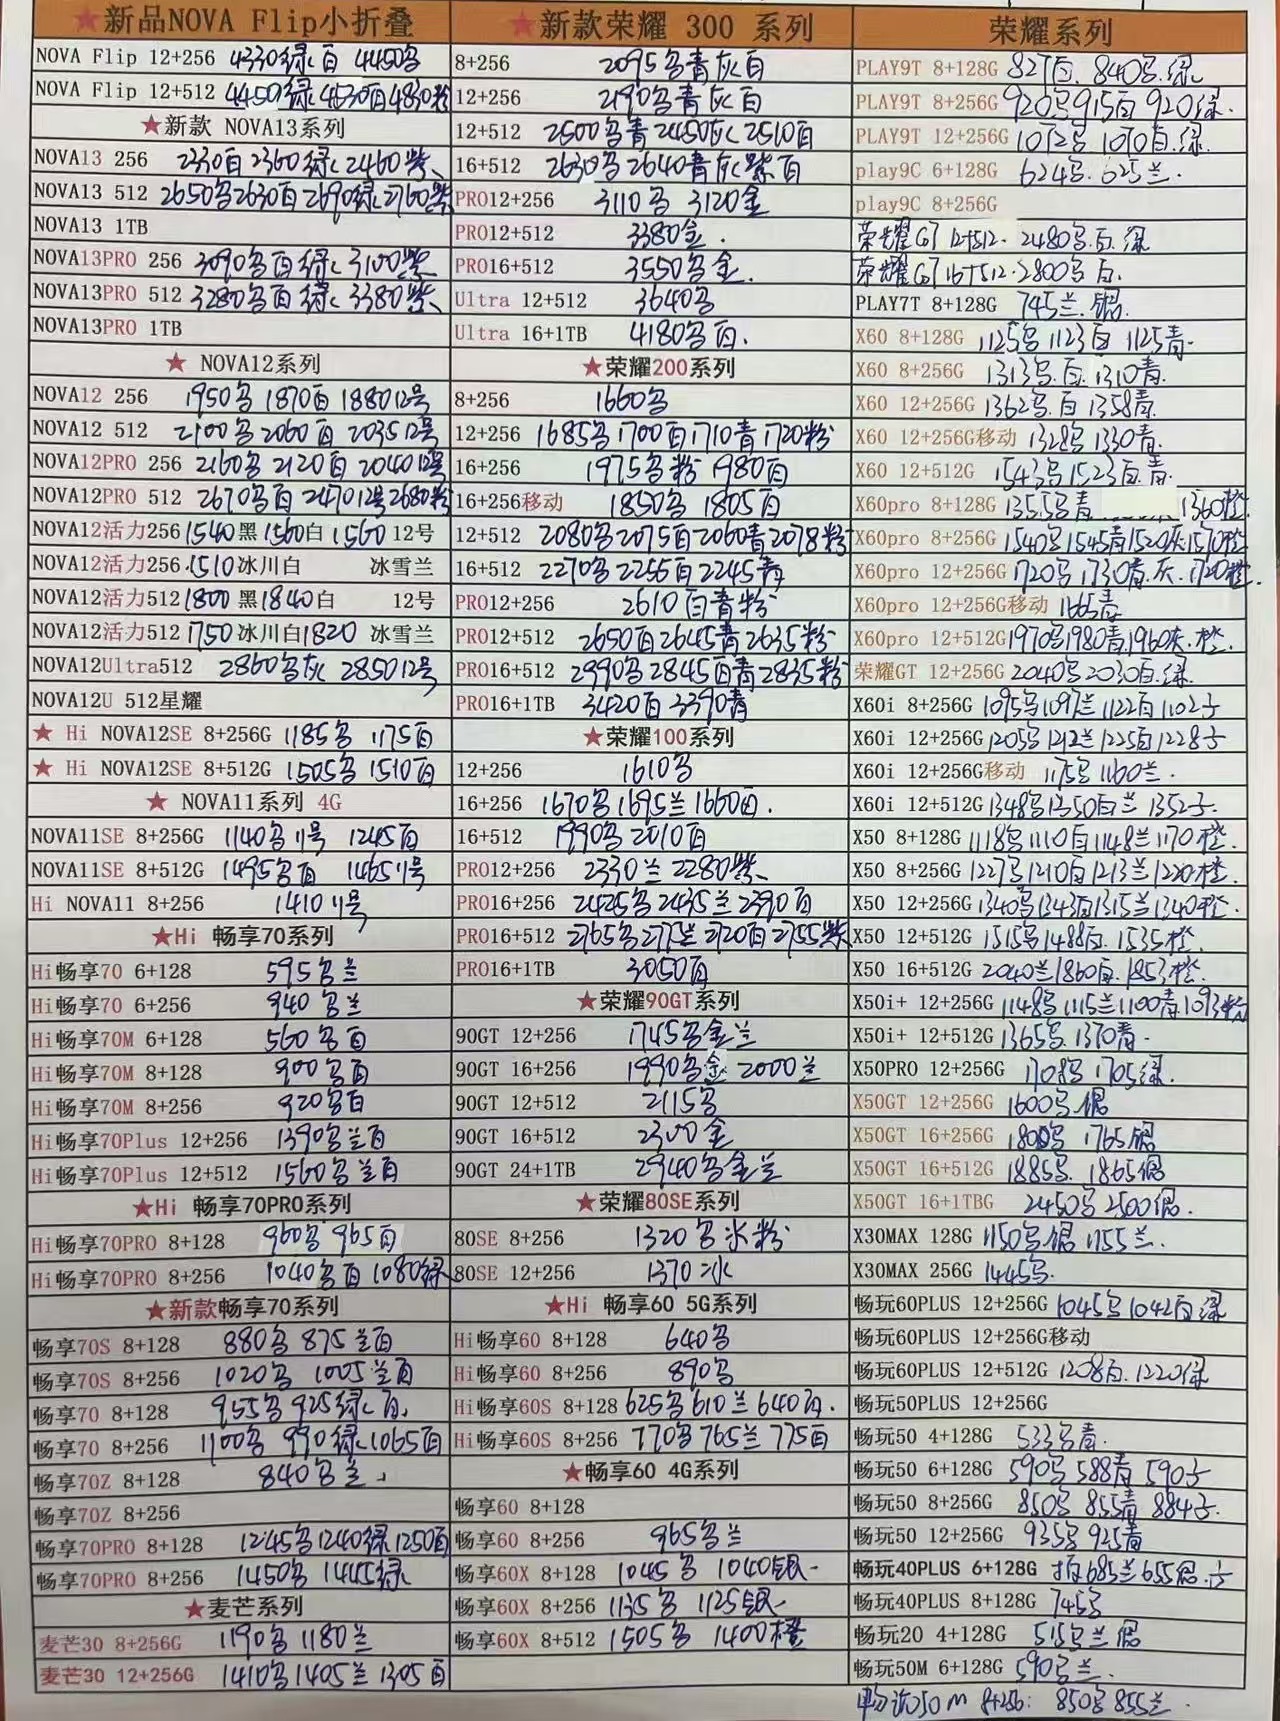 ★新品NOVA Flip小折叠
NOVA Flip 12+256 4330绿白 4450黑
NOVA Flip 12+512 4450绿 4630白 4830粉
★新款 NOVA13系列
NOVA13 256 2330白 2360绿 2460紫
NOVA13 512 2650黑 2630白 2690绿 2760紫
NOVA13 1TB
NOVA13PRO 256 3090黑白绿 3100紫
NOVA13PRO 512 3280黑白绿 3380紫
NOVA13PRO 1TB
★ NOVA12系列
NOVA12 256 1950黑 1870白 1880 12号
NOVA12 512 2100黑 2060白 2035 12号
NOVA12PRO 256 2160黑 2120白 2040 12号
NOVA12PRO 512 2670黑白 2470 12号 2680粉
NOVA12活力256 1540黑 1560白 1560 12号
NOVA12活力256 1510冰川白 冰雪兰
NOVA12活力512 1800黑 1840白 12号
NOVA12活力512 1750冰川白 1820 冰雪兰
NOVA12Ultra512 2860黑灰 2850 12号
NOVA12U 512星耀
★ Hi NOVA12SE 8+256G 1185黑 1175白
★ Hi NOVA12SE 8+512G 1505黑 1510白
★ NOVA11系列 4G
NOVA11SE 8+256G 1140黑 11号 1245白
NOVA11SE 8+512G 1495黑白 1465 11号
Hi NOVA11 8+256 1410 11号
★Hi 畅享70系列
Hi畅享70 6+128 595黑兰
Hi畅享70 6+256 940黑兰
Hi畅享70M 6+128 560黑白
Hi畅享70M 8+128 900黑白
Hi畅享70M 8+256 920黑白
Hi畅享70Plus 12+256 1390黑兰白
Hi畅享70Plus 12+512 1560黑兰白
★Hi 畅享70PRO系列
Hi畅享70PRO 8+128 960黑 965白
Hi畅享70PRO 8+256 1040黑白 1080绿
★新款畅享70系列
畅享70S 8+128 880黑 875兰白
畅享70S 8+256 1020黑 1005兰白
畅享70 8+128 955黑 925绿白
畅享70 8+256 1100黑 990绿 1065白
畅享70Z 8+128 840黑兰
畅享70Z 8+256
畅享70PRO 8+128 1245黑 1240绿 1250白
畅享70PRO 8+256 1450黑 1445绿
★麦芒系列
麦芒30 8+256G 1190黑 1180兰
麦芒30 12+256G 1410黑 1405兰 1305白
★新款荣耀 300 系列
8+256 2095黑青灰白
12+256 2190黑青灰白
12+512 2500黑青 2450灰 2510白
16+512 2630黑 2640青灰紫白
PRO12+256 3110黑 3120金
PRO12+512 3380金
PRO16+512 3550黑金
Ultra 12+512 3640黑
Ultra 16+1TB 4180黑白
★荣耀200系列
8+256 1660黑
12+256 1685黑 1700白 1710青 1720粉
16+256 1975黑粉 1980白
16+256移动 1850黑 1805白
12+512 2080黑 2075白 2060青 2078粉
16+512 2270黑 2255白 2245青
PRO12+256 2610白青粉
PRO12+512 2650白 2645青 2635粉
PRO16+512 2990黑 2845白青 2835粉
PRO16+1TB 3420白 3390青
★荣耀100系列
12+256 1610黑
16+256 1670黑 1695兰 1660白
16+512 1990黑 2010白
PRO12+256 2330兰 2280紫
PRO16+256 2425黑 2435兰 2390白
PRO16+512 2765黑 2775兰 2720白 2755紫
PRO16+1TB 3050白
★荣耀90GT系列
90GT 12+256 1745黑金兰
90GT 16+256 1990黑金 2000兰
90GT 12+512 2115黑
90GT 16+512 2300金
90GT 24+1TB 2940黑金兰
★荣耀80SE系列
80SE 8+256 1320黑冰粉
80SE 12+256 1370冰
★Hi 畅享60 5G系列
Hi畅享60 8+128 640黑
Hi畅享60 8+256 890黑
Hi畅享60S 8+128 625黑 610兰 640白
Hi畅享60S 8+256 770黑 765兰 775白
★畅享60 4G系列
畅享60 8+128
畅享60 8+256 965黑兰
畅享60X 8+128 1045黑 1040银
畅享60X 8+256 1135黑 1125银
畅享60X 8+512 1505黑 1400橙
荣耀系列
PLAY9T 8+128G 827白 840黑绿
PLAY9T 8+256G 920黑 915白 920绿
PLAY9T 12+256G 1072黑 1070白绿
play9C 6+128G 624黑 625兰
play9C 8+256G
荣耀GT 12+512 2480黑白绿
荣耀GT 16+512 2800黑白
PLAY7T 8+128G 745兰银
X60 8+128G 1125黑 1123白 1125青
X60 8+256G 1313黑白 1310青
X60 12+256G 1362黑白 1358青
X60 12+256G移动 1328黑 1330青
X60 12+512G 1543黑 1523白青
X60pro 8+128G 1355黑青 1360橙
X60pro 8+256G 1540黑 1545青 1520灰 1570橙
X60pro 12+256G 1720黑 1730青灰 1720橙
X60pro 12+256G移动 1665青
X60pro 12+512G 1970黑 1980青 1960灰橙
荣耀GT 12+256G 2040黑 2030白绿
X60i 8+256G 1095黑 1097兰 1122白 1102子
X60i 12+256G 1205黑 1212兰 1225白 1228子
X60i 12+256G移动 1175黑 1160兰
X60i 12+512G 1348黑 1350白兰 1352子
X50 8+128G 1118黑 1110白 1148兰 1170橙
X50 8+256G 1227黑 1210白 1213兰 1220橙
X50 12+256G 1340黑 1343白 1315兰 1340橙
X50 12+512G 1515黑 1488白 1535橙
X50 16+512G 2040兰 1860白 1853橙
X50i+ 12+256G 1148黑 1115兰 1100青 1093粉
X50i+ 12+512G 1365黑 1370青
X50PRO 12+256G 1708黑 1705绿
X50GT 12+256G 1600黑银
X50GT 16+256G 1800黑 1765银
X50GT 16+512G 1885黑 1865银
X50GT 16+1TBG 2450黑 2500银
X30MAX 128G 1150黑银 1155兰
X30MAX 256G 1445黑
畅玩60PLUS 12+256G 1045黑 1042白绿
畅玩60PLUS 12+256G移动
畅玩60PLUS 12+512G 1208白 1220绿
畅玩50PLUS 12+256G
畅玩50 4+128G 533黑青
畅玩50 6+128G 590黑 588青 590子
畅玩50 8+256G 850黑 855青 884子
畅玩50 12+256G 935黑 925青
畅玩40PLUS 6+128G 685兰 655银
畅玩40PLUS 8+128G 745黑
畅玩20 4+128G 515黑兰银
畅玩50M 6+128G 590黑兰
畅玩50M 8+256: 850黑 855兰